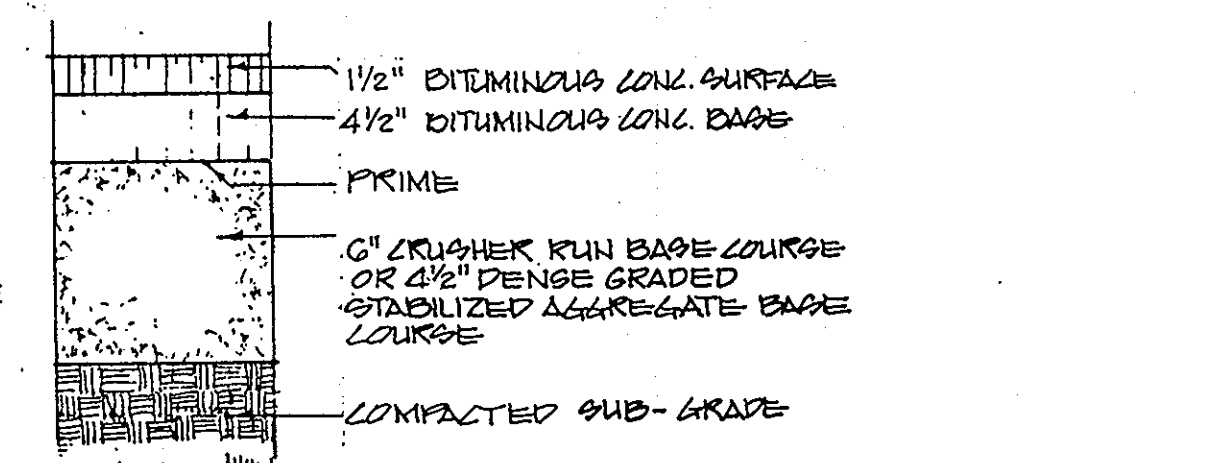 1 1/2" BITUMINOUS CONC. SURFACE
4 1/2" BITUMINOUS CONC. BASE
PRIME
6" CRUSHER RUN BASE COURSE
OR 4 1/2" DENSE GRADED
STABILIZED AGGREGATE BASE
COURSE
COMPACTED SUB-GRADE